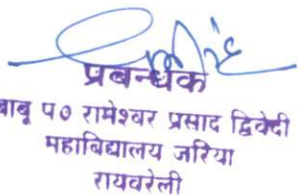 प्रबन्धक
बाबू प० रामेश्वर प्रसाद द्विवेदी
महाबिद्यालय जरिया
रायवरेली